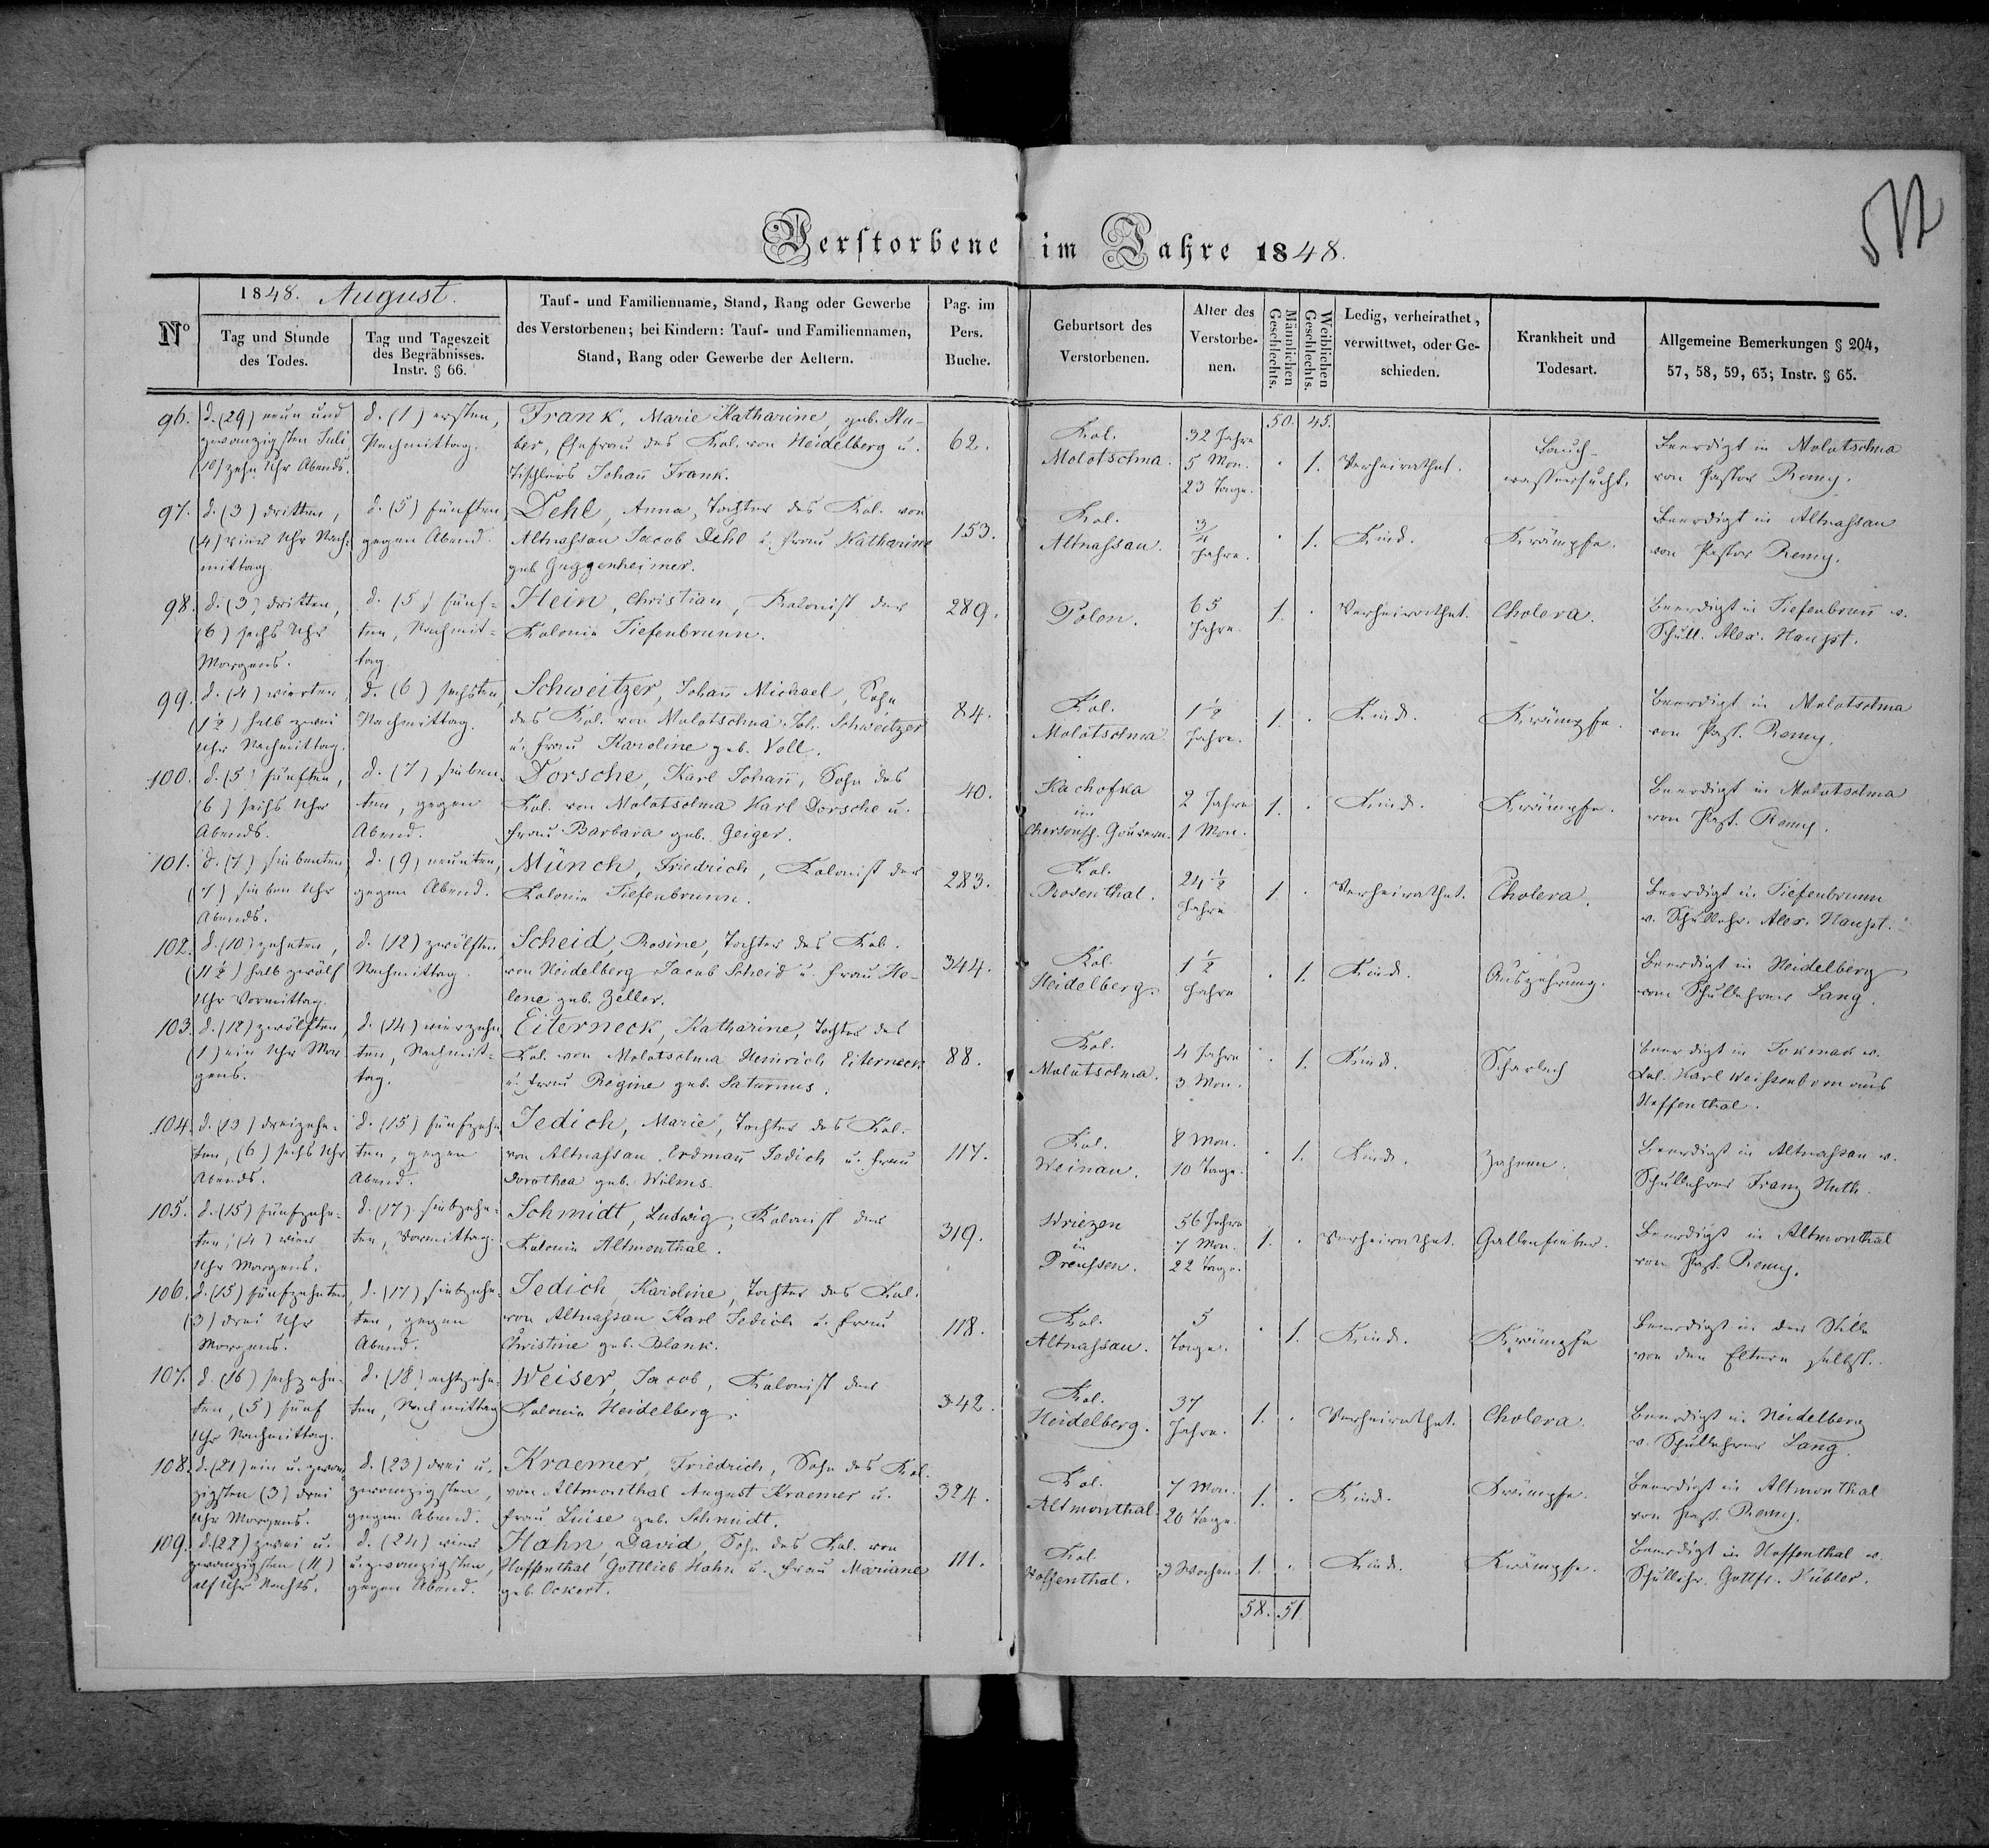 512
Verstorbene im Jahre 1848.
No
1848. August.
Tag und Stunde
des Todes.
Tag und Tageszeit
des Begräbnisses.
Instr. § 66.
Tauf- und Familienname, Stand, Rang oder Gewerbe
des Verstorbenen; bei Kindern: Tauf- und Familiennamen,
Stand, Rang oder Gewerbe der Aeltern.
Pag. im
Pers.
Buche.
Geburtsort des
Verstorbenen.
Alter des
Verstorbe-
nen.
Männlichen
Geschlechts.
Weiblichen
Geschlechts.
Ledig, verheirathet,
verwittwet, oder Ge-
schieden.
Krankheit und
Todesart.
Allgemeine Bemerkungen § 204,
57, 58, 59, 63; Instr. § 65.
50. 45.
96.
d. (29) neun und
zwanzigsten Juli
(10) zehn Uhr Abends.
d. (1) ersten,
Nachmittag.
Frank, Marie Katharine, geb. Stu-
ber, Ehefrau des Kol. von Heidelberg u.
Tischlers Johan̄ Frank.
62.
Kol.
Molotschna.
32 Jahre
5 Mon.
23 Tage.
. 1.
Verheirathet.
Bauch-
wassersucht.
Beerdigt in Molotschna
von Pastor Remy.
97.
d. (3) dritten,
(4) vier Uhr Nach-
mittag.
d. (5) fünften,
gegen Abend.
Dehl, Anna, Tochter des Kol. von
Altnassau Jacob Dehl u. Frau Katharine
geb. Guggenheimer.
153.
Kol.
Altnassau.
3/4
Jahre.
. 1.
Kind.
Krämpfe.
Beerdigt in Altnassau
von Pastor Remy.
98.
d. (3) dritten,
(6) sechs Uhr
Morgens.
d. (5) fünf-
ten, Nachmit-
tag.
Hein, Christian, Kolonist der
Kolonie Tiefenbrunn.
289.
Polen.
65
Jahre.
1. .
Verheirathet.
Cholera.
Beerdigt in Tiefenbrun̄ v.
Schull. Alex. Haupt.
99.
d. (4) vierten,
(1½) halb zwei
Uhr Nachmittag.
d. (6) sechsten,
Nachmittag.
Schweitzer, Johan̄ Michael, Sohn
des Kol. von Molotschna Joh. Schweitzer
u. Frau Karoline geb. Voll.
84.
Kol.
Molotschna.
1½
Jahre.
1. .
Kind.
Krämpfe.
Beerdigt in Molotschna
von Past. Remy.
100.
d. (5) fünften,
(6) sechs Uhr
Abends.
d. (7) sieben-
ten, gegen
Abend.
Dorsche, Karl Johan̄, Sohn des
Kol. von Molotschna Karl Dorsche u.
Frau Barbara geb. Geiger.
40.
Kachofka
im
Chersonsch. Gouvern.
2 Jahre
1 Mon.
1. .
Kind.
Krämpfe.
Beerdigt in Molotschna
von Past. Remy.
101.
d. (7) siebenten,
(7) sieben Uhr
Abends.
d. (9) neunten,
gegen Abend.
Münch, Friedrich, Kolonist der
Kolonie Tiefenbrunn.
283.
Kol.
Rosenthal.
24½
Jahre
1. .
Verheirathet.
Cholera.
Beerdigt in Tiefenbrunn
v. Schullehr. Alex. Haupt.
102.
d. (10) zehnten,
(11½) halb zwölf
Uhr Vormittag.
d. (12) zwölften
Nachmittag.
Scheid, Rosine, Tochter des Kol.
von Heidelberg Jacob Scheid u. Frau He-
lene geb. Zeller.
344.
Kol.
Heidelberg.
1½
Jahre
. 1.
Kind.
Auszehrung.
Beerdigt in Heidelberg
vom Schullehrer Lang.
103.
d. (12) zwölften,
(1) ein Uhr Mor
gens.
d. (14) vierzehn
ten, Nachmit-
tag.
Eiterneck, Katharine, Tochter des
Kol. von Molotschna Heinrich Eiterneck
u. Frau Regine geb. Saturnus.
88.
Kol.
Molotschna.
4 Jahre
3 Mon.
. 1.
Kind.
Scharlach
Beerdigt in Tokmak v.
Kol. Karl Weissenborn aus
Hoffenthal.
104.
d. (13) dreizehn-
ten, (6) sechs Uhr
Abends.
d. (15) fünfzehn
ten, gegen
Abend.
Jedich, Marie, Tochter des Kol.
von Altnassau, Erdman̄ Jedich u. Frau
Dorothea geb. Wilms.
117.
Kol.
Weinau.
8 Mon.
10 Tage.
. 1.
Kind.
Zahnen.
Beerdigt in Altnassau v.
Schullehrer Franz Huth.
105.
d. (15) fünfzehn-
ten, (4) vier
Uhr Morgens.
d. (17) siebzehn-
ten, Vormittag.
Schmidt, Ludwig, Kolonist der
Kolonie Altmonthal.
319.
Wriezen
in
Preussen.
56 Jahre
7 Mon.
22 Tage.
1. .
Verheirathet.
Gallenfieber.
Beerdigt in Altmonthal
von Past. Remy.
106.
d. (15) fünfzehnten,
(3) drei Uhr
Morgens.
d. (17) siebzehn-
ten, gegen
Abend.
Jedich, Karoline, Tochter des Kol.
von Altnassau Karl Jedich u. Frau
Christine geb. Blank.
118.
Kol.
Altnassau.
5
Tage.
. 1.
Kind.
Krämpfe
Beerdigt in der Stille
von den Eltern selbst.
107.
d. (16) sechzehn-
ten, (5) fünf
Uhr Nachmittag.
d. (18) achtzehn-
ten, Nachmittag
Weiser, Jacob, Kolonist der
Kolonie Heidelberg.
342.
Kol.
Heidelberg.
37
Jahre.
1. .
Verheirathet.
Cholera.
Beerdigt in Heidelberg
v. Schullehrer Lang.
108.
d. (21) ein u. zwan
zigsten (3) drei
Uhr Morgens.
d. (23) drei u.
zwanzigsten,
gegen Abend.
Kraemer, Friedrich, Sohn des Kol.
von Altmonthal August Kraemer u.
Frau Luise geb. Schmidt.
324.
Kol.
Altmonthal.
7 Mon.
20 Tage.
1. .
Kind.
Krämpfe.
Beerdigt in Altmonthal
von Past. Remy.
109.
d. (22) zwei u.
zwanzigsten (11)
elf Uhr Nachts.
d. (24) vier
u. zwanzigsten,
gegen Abend.
Hahn, David, Sohn des Kol. von
Hoffenthal Gottlieb Hahn u. Frau Mariane
geb. Ockert.
111.
Kol.
Hoffenthal.
3 Wochen.
1. .
Kind.
Krämpfe.
Beerdigt in Hoffenthal v.
Schullehr. Gottfr. Kübler.
58. 51.